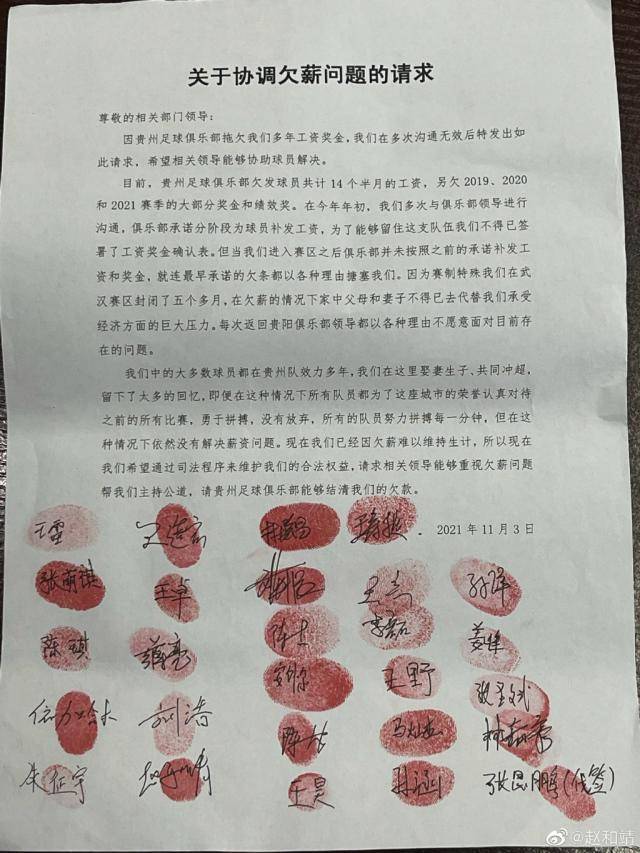 关于协调欠薪问题的请求
尊敬的相关部门领导：
因贵州足球俱乐部拖欠我们多年工资奖金，我们在多次沟通无效后特发出如
此请求，希望相关领导能够协助球员解决。
目前，贵州足球俱乐部欠发球员共计 14 个半月的工资，另欠 2019、2020
和 2021 赛季的大部分奖金和绩效奖。在今年年初，我们多次与俱乐部领导进行
沟通，俱乐部承诺分阶段为球员补发工资，为了能够留住这支队伍我们不得已签
署了工资奖金确认表。但当我们进入赛区之后俱乐部并未按照之前的承诺补发工
资和奖金，就连最早承诺的欠条都以各种理由搪塞我们。因为赛制特殊我们在武
汉赛区封闭了五个多月，在欠薪的情况下家中父母和妻子不得已去代替我们承受
经济方面的巨大压力。每次返回贵阳俱乐部领导都以各种理由不愿意面对目前存
在的问题。
我们中的大多数球员都在贵州队效力多年，我们在这里娶妻生子、共同冲超，
留下了太多的回忆，即便在这种情况下所有队员都为了这座城市的荣誉认真对待
之前的所有比赛，勇于拼搏，没有放弃，所有的队员努力拼搏每一分钟，但在这
种情况下依然没有解决薪资问题。现在我们已经因欠薪难以维持生计，所以现在
我们希望通过司法程序来维护我们的合法权益，请求相关领导能够重视欠薪问题
帮我们主持公道，请贵州足球俱乐部能够结清我们的欠款。
2021 年 11 月 3 日
王卓
陈琪
王野
刘涛
朱征宇
王昊
张思鹏(代签)
@赵和靖